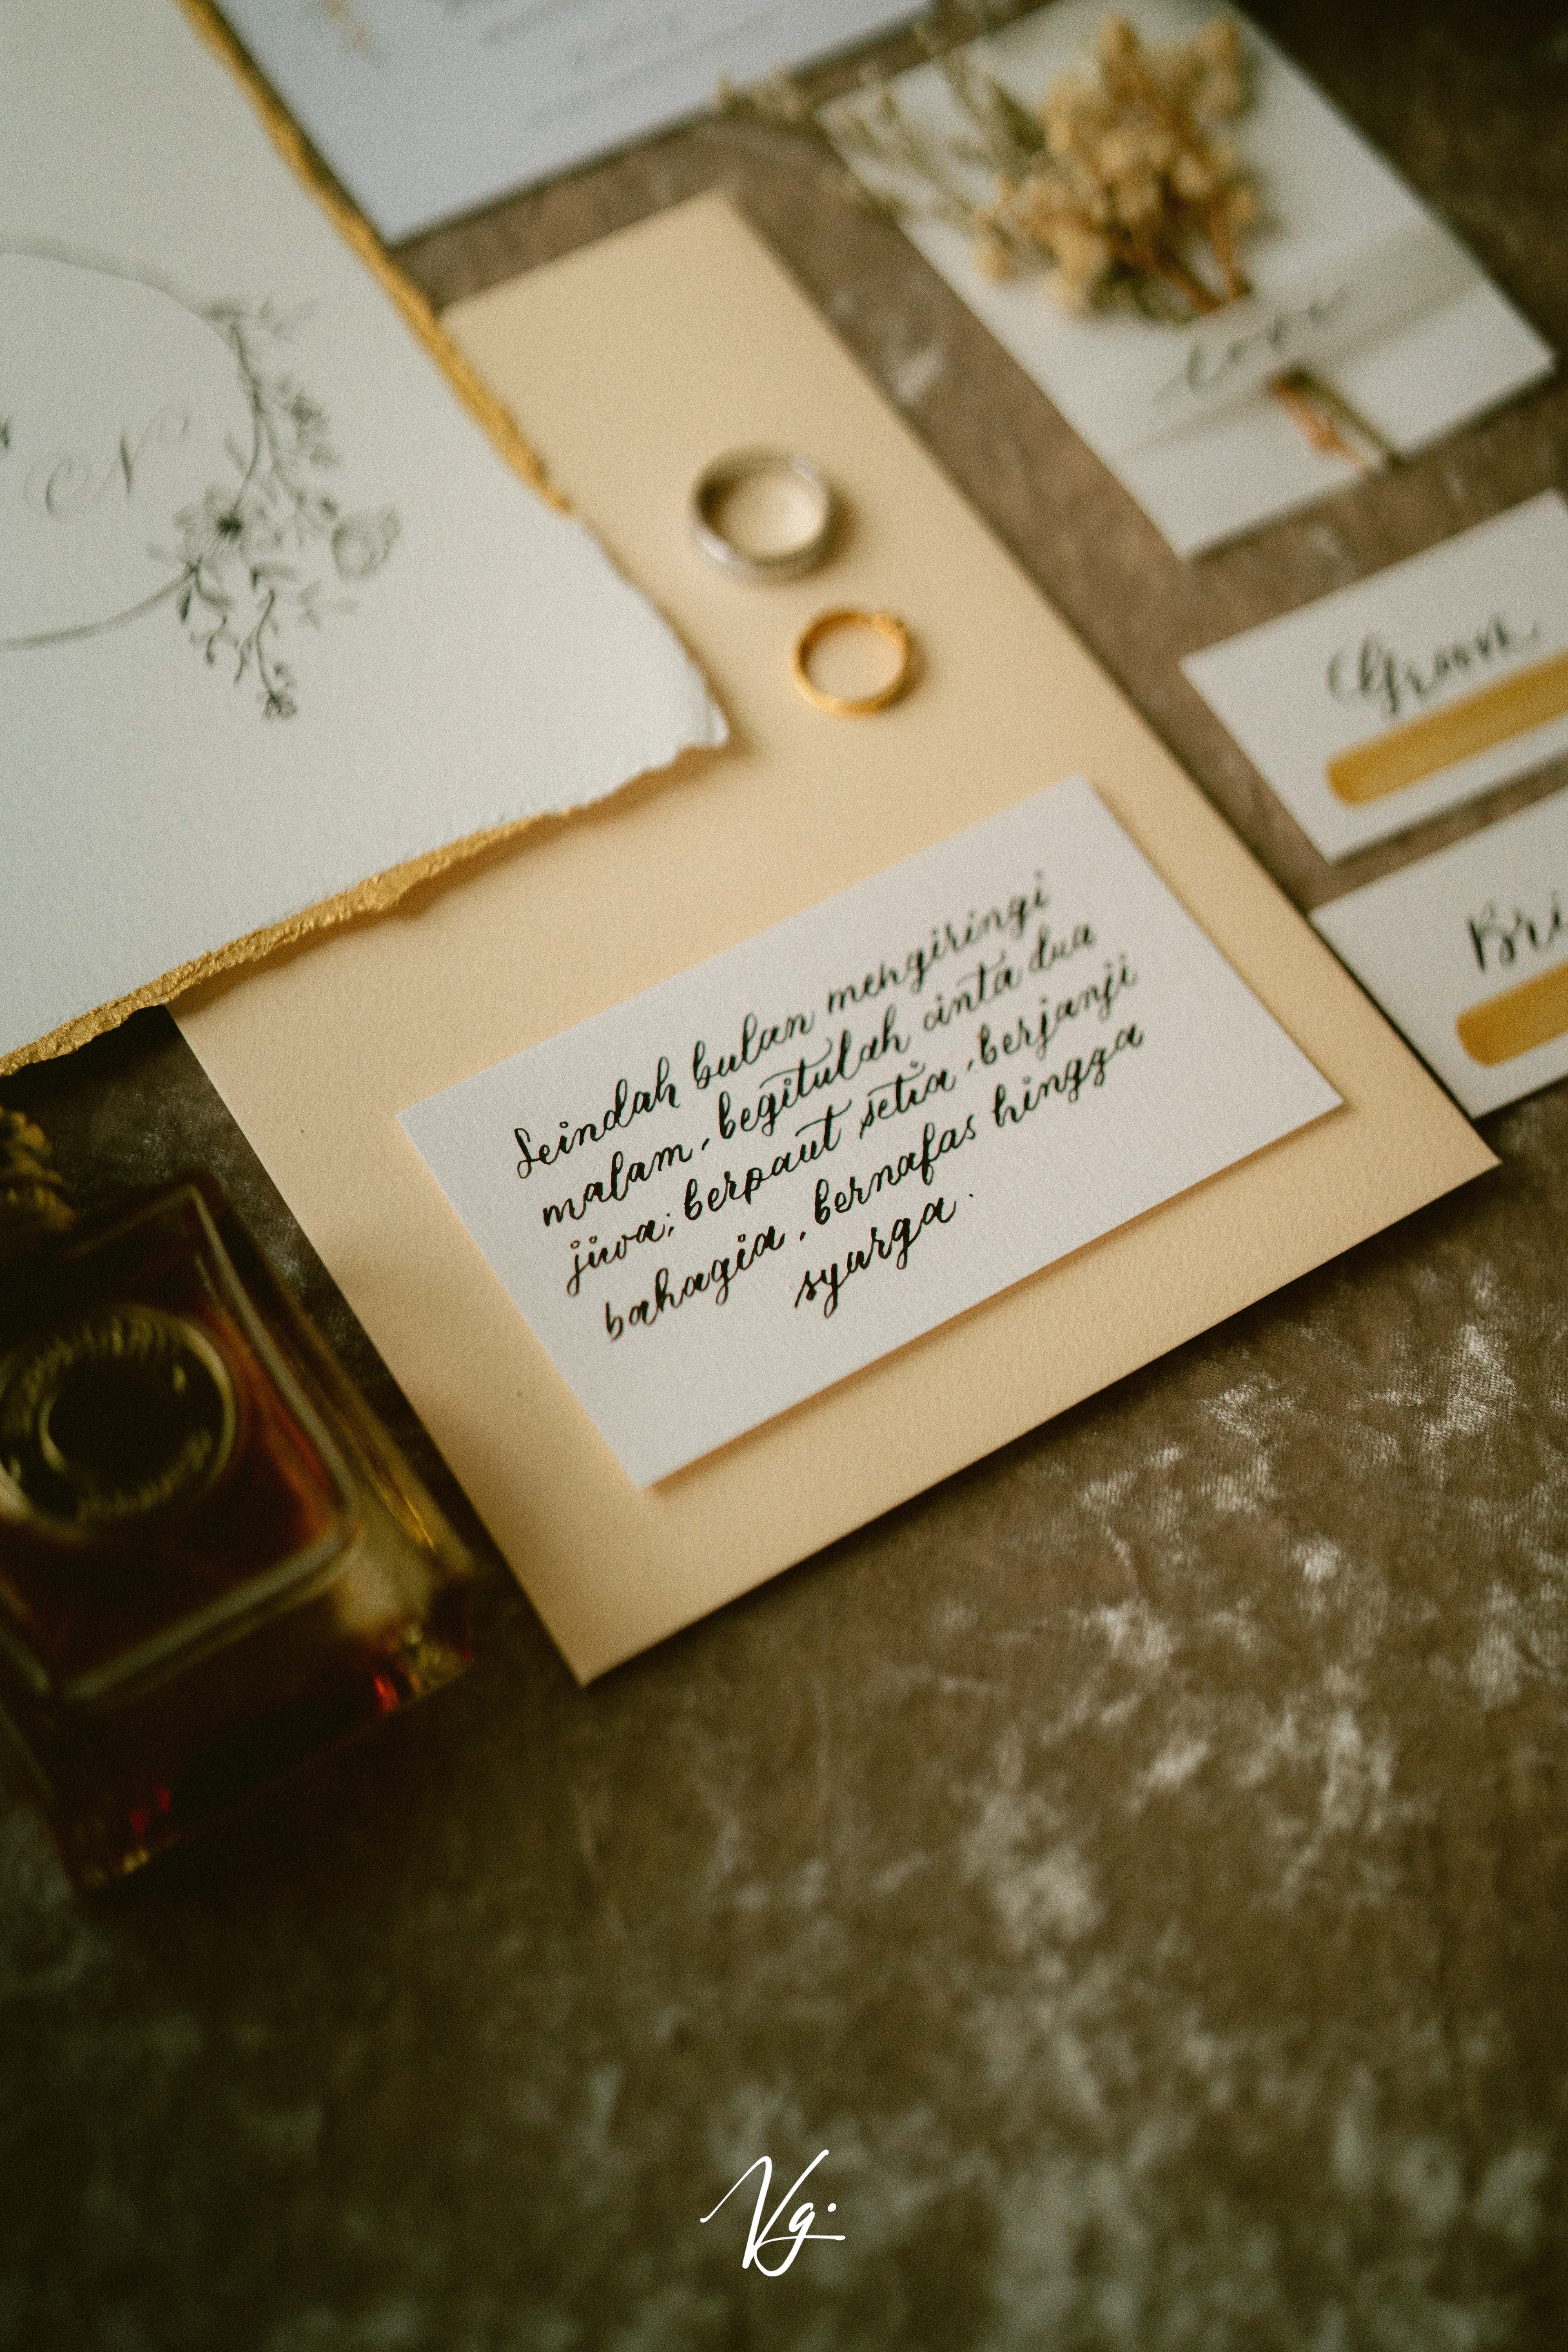 N
love
Groom
Seindah bulan mengiringi
malam, begitulah cinta dua
jiwa; berpaut setia, berjanji
bahagia, bernafas hingga
syurga.
Bri
Vg.